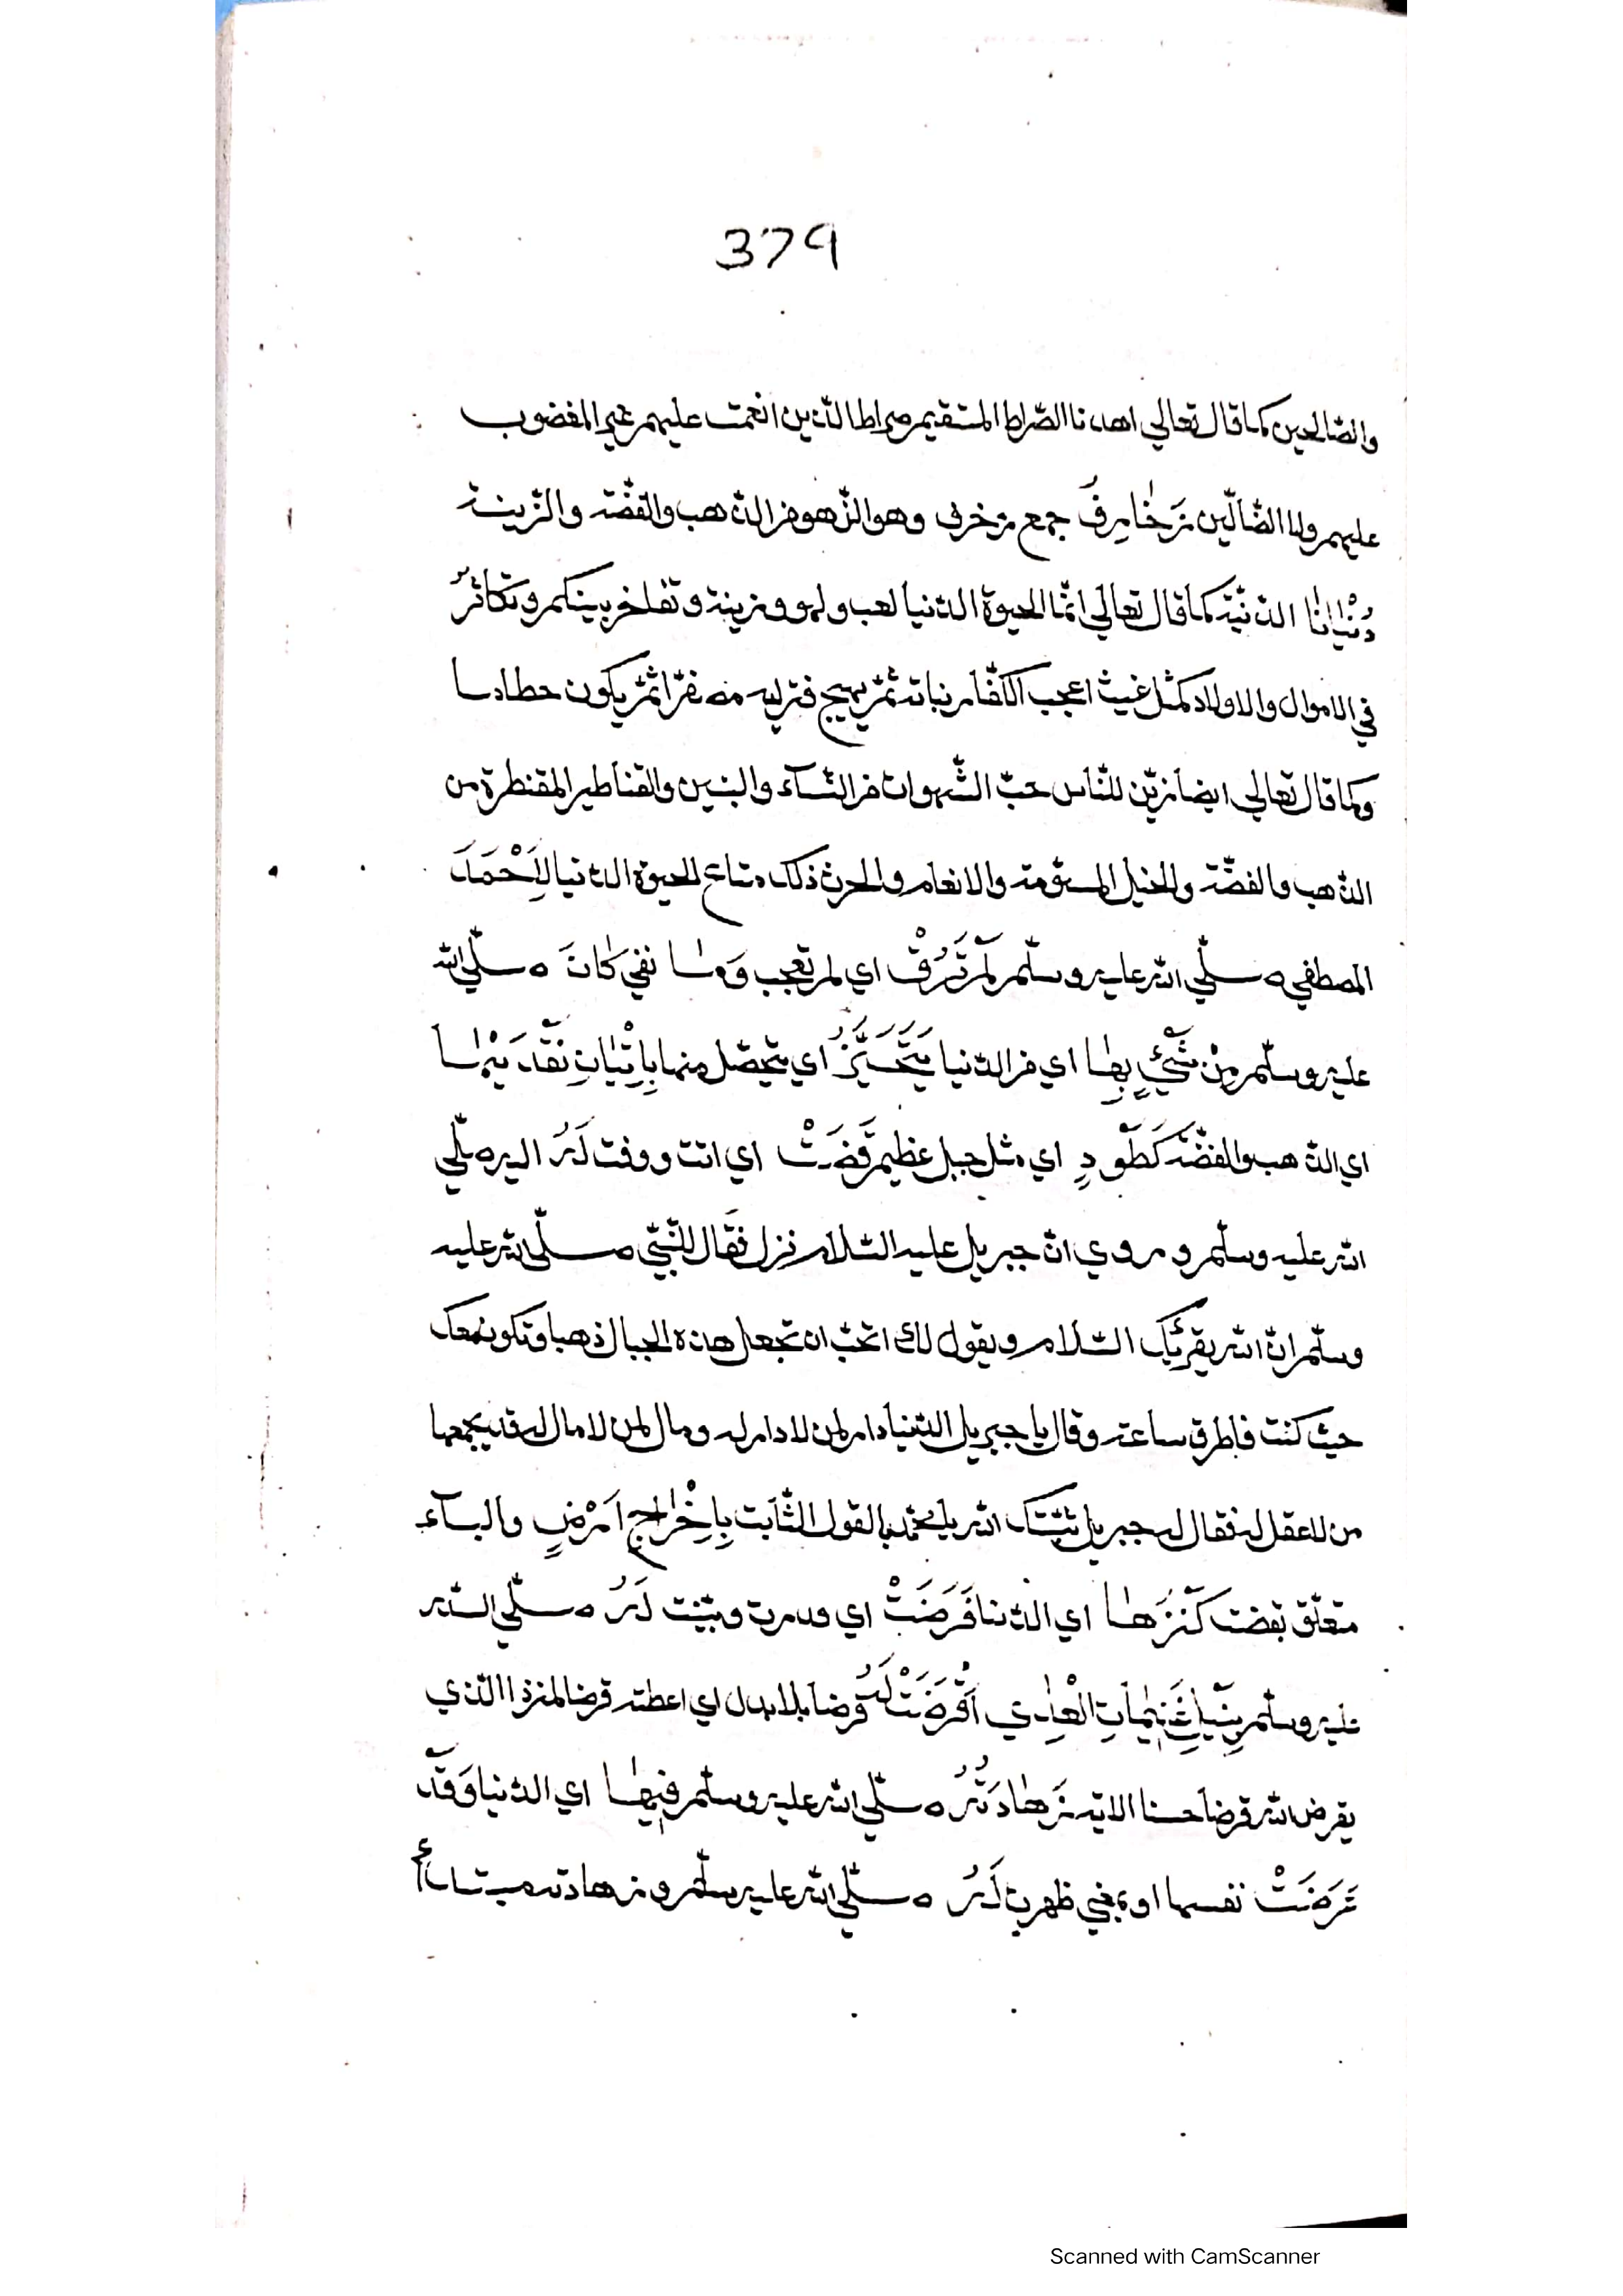 379
والصّالحين كما قال تعالي اهدنا الصّراط المستقيم صراط الّذين انعمت عليهم غير المغضوب
عليهم ولا الضّالّين زَخَارِفُ جمع زخرف وهو الزّهو من الذّهب والفضّة والزّينة
دُنْيَانَا الدّنيّة كما قال تعالي انّما الحيوة الدّنيا لعب ولهو وزينة وتفاخر بينكم وتكاثرٌ
في الاموال والاولاد كمثل غيث اعجب الكفّار نباته ثمّ يهيج فتريه مصفرّا ثمّ يكون حطاما
وكما قال تعالي ايضا زيّن للنّاس حبّ الشّهوات من النّسآء والبنين والقناطير المقنطرة من
الذّهب والفضّة والخيل المسوّمة والانعام والحرث ذلك متاع الحيوة الدّنيا لِأَحْمَدَ
المصطفي صلّي الله عليه وسلّم لَمْ تَرُقْ اي لم تعجب وَمَا نفي كَانَ صلّي الله
عليه وسلّم مِنْ شَيْءٍ بِهَا اي من الدّنيا يَتَحَيَّزُ اي يتحصّل منها بِإِتْيَانِ نَقْدَيْهَا
اي الذّهب والفضّة كَطَوْدٍ اي مثل جبل عظيم قَضَتْ اي اتت ووفت لَهُ اليه صلّي
الله عليه وسلّم وروي انّ جبريل عليه السّلام نزل فقال للنّبيّ صلّي الله عليه
وسلّم انّ الله يقرئك السّلام ويقول لك اتحبّ ان تجعل هذه الجبال ذهبا وتكون معك
حيث كنت فاطرق ساعة وقال يا جبريل الدّنيا دار لمن لا دار له ومال لمن لا مال له قد يجمعها
من لا عقل له فقال له جبريل ثبّتك الله يا محمّد بالقول الثّابت بِإِخْرَاجِ أَرْضٍ والبآء
متعلّق بقضت كَنْزَهَا اي الدّنيا فَرَضَتْ اي قدرت وبيّنت لَهُ صلّي الله
عليه وسلّم بِنَيْلِ غَنِيمَاتِ الْعِدي أَقْرَضَتْ لَهُ قرضا بلا بدل اي اعطته قرضا لمن ذا الّذي
يقرض الله قرضا حسنا الاية زَهَادَتُهُ صلّي الله عليه وسلّم فِيهَا اي الدّنيا وَقَدْ
عَرَضَتْ نفسها او بمعني ظهرت لَهُ صلّي الله عليه وسلّم وزهادته مبتدأ
Scanned with CamScanner